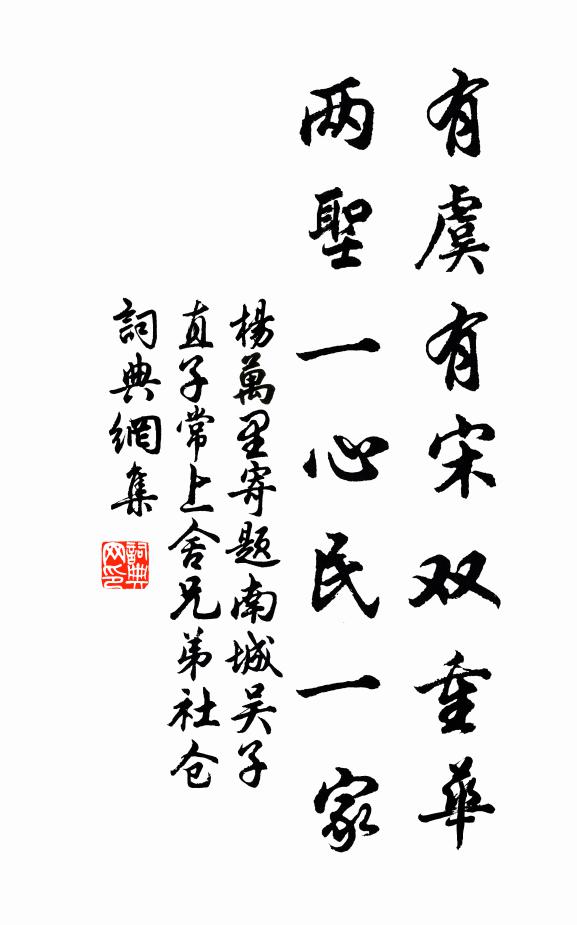 有虞有宋双重華
两聖一心民一家
楊萬里寄题南城吴子
直子常上舍兄弟社仓
詞典網集
詞典网印